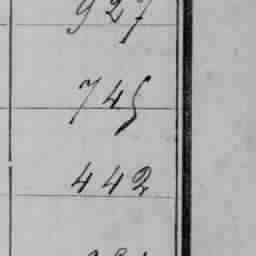 927
745
442